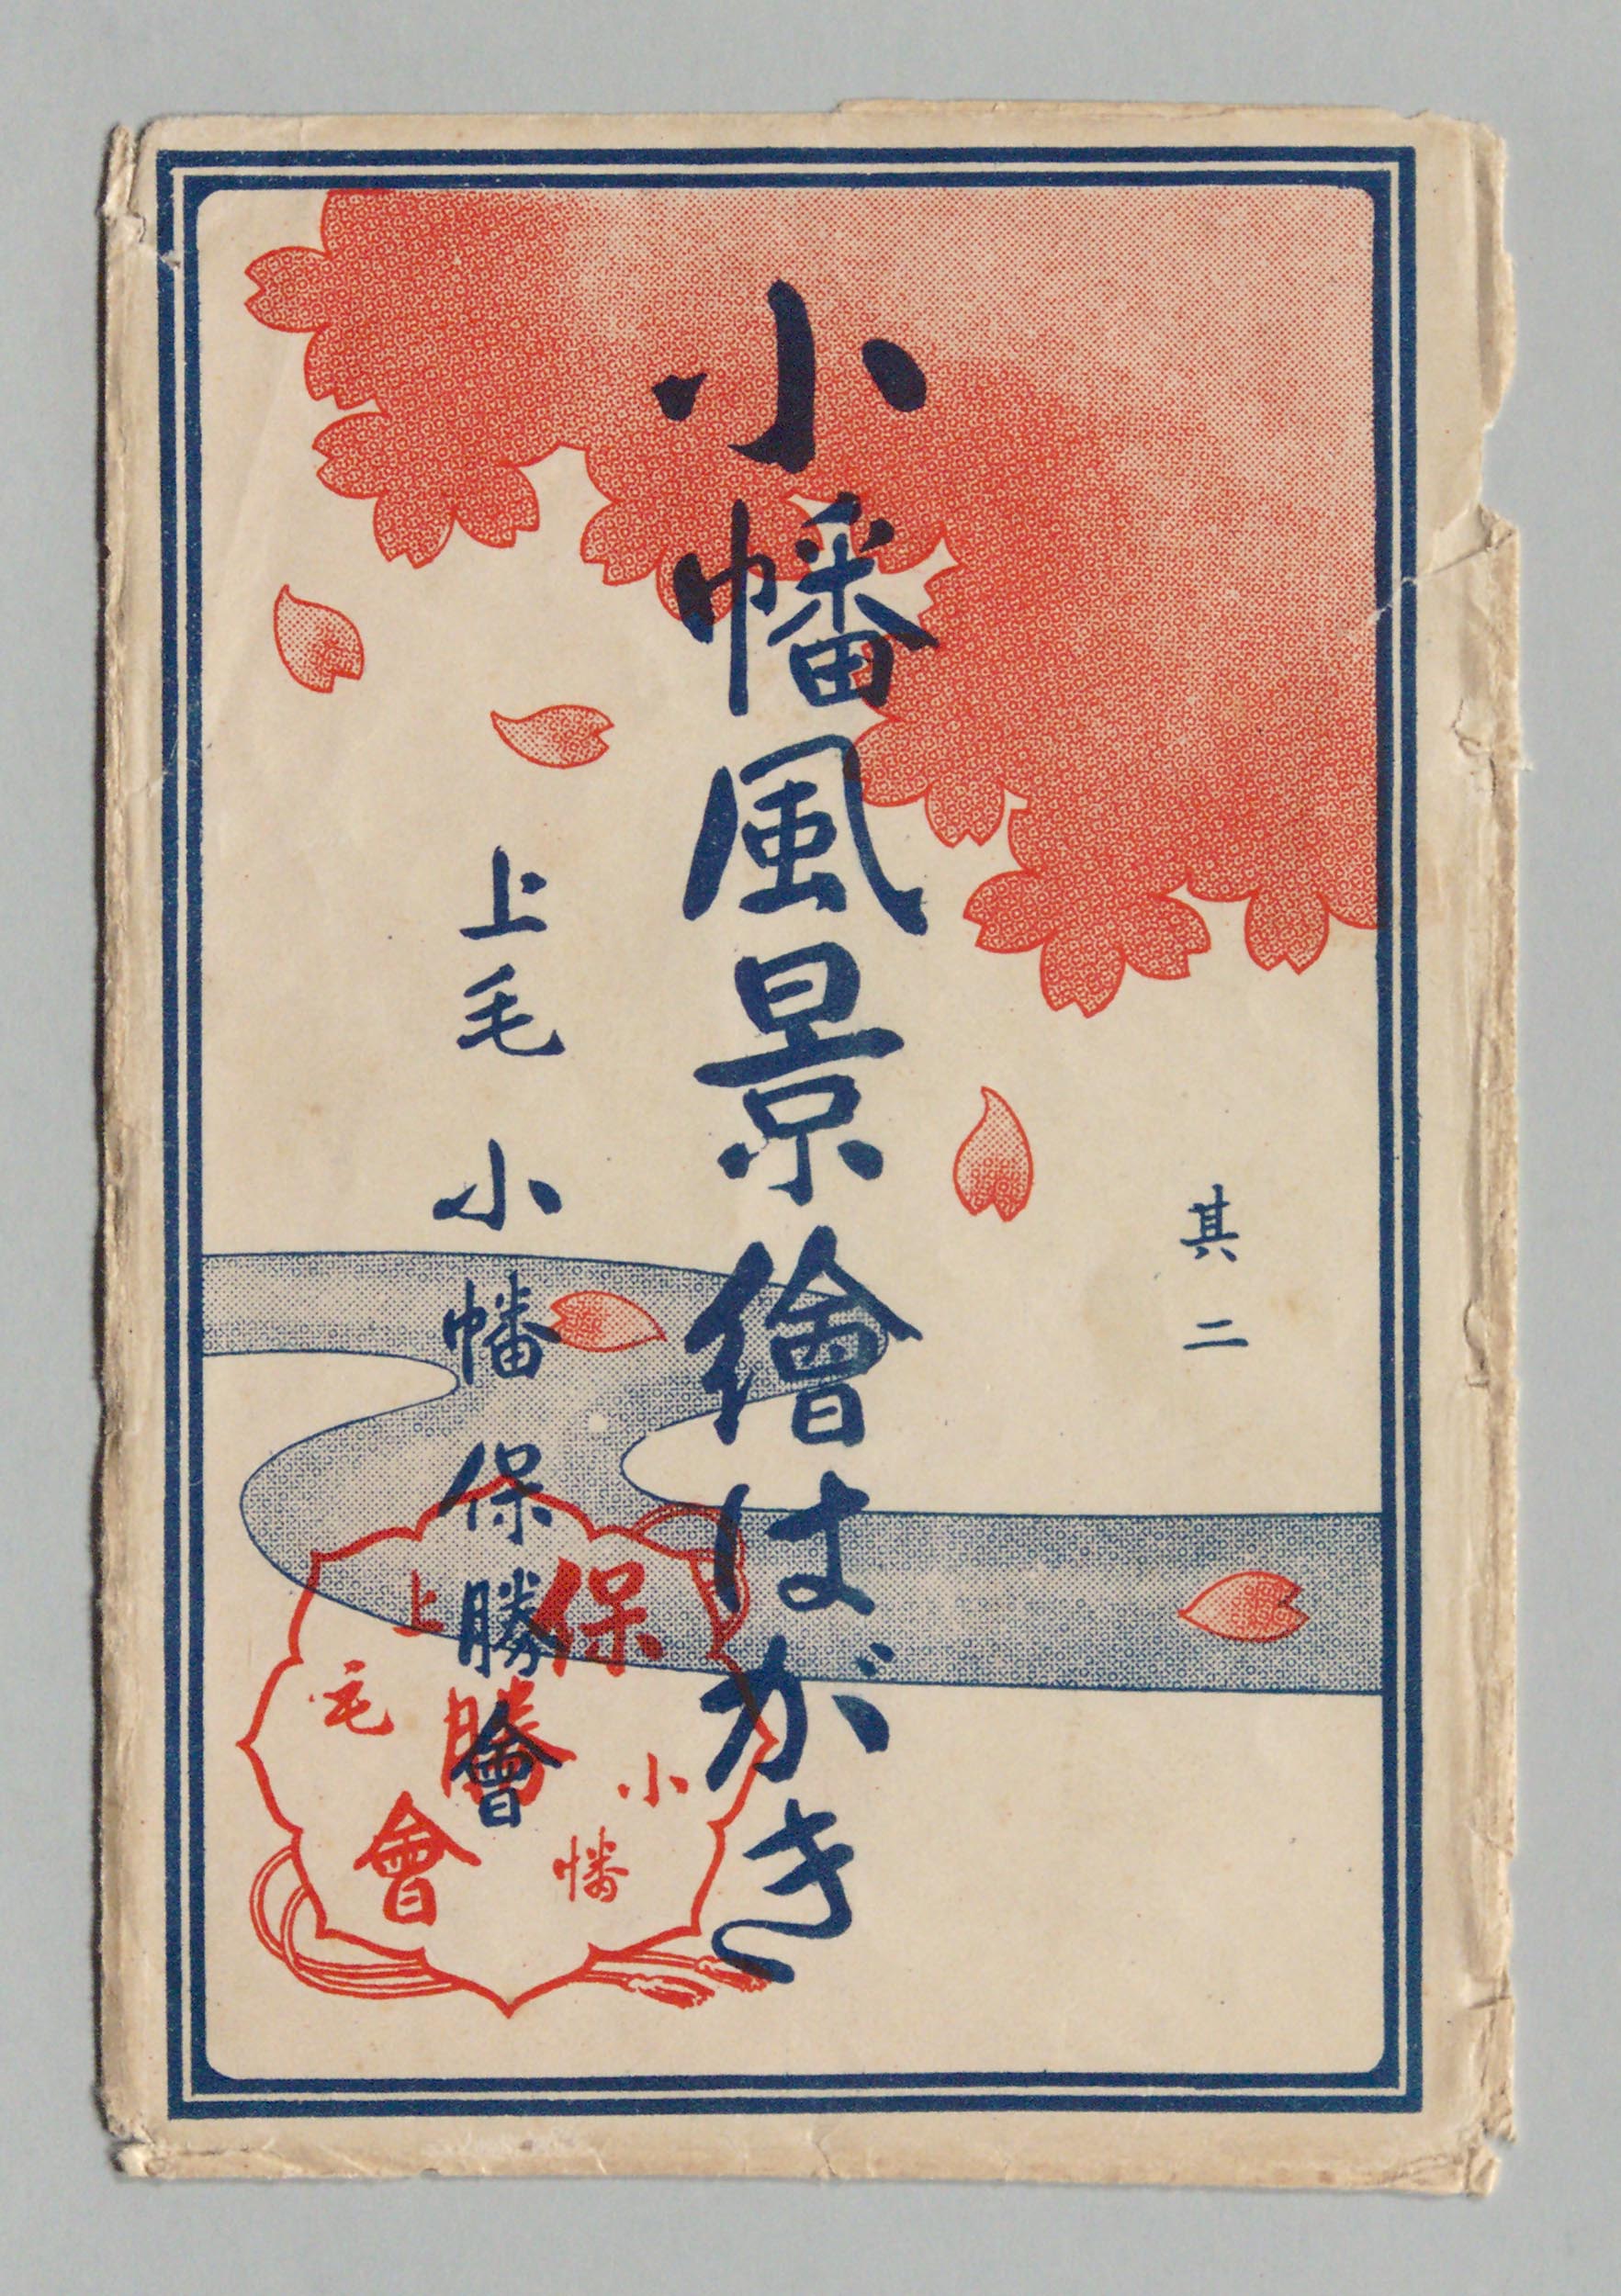 其二
小幡風景繪はがき
上毛 小幡保勝會
保勝會
上毛
小幡